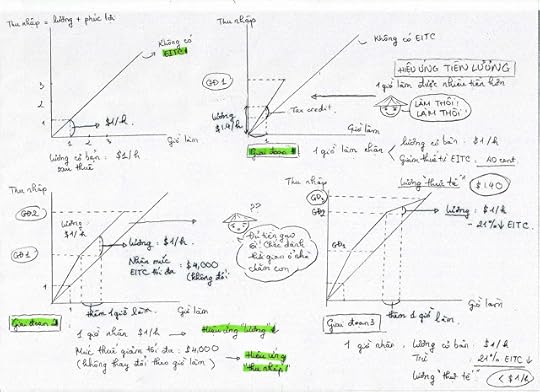 Thu nhập = lương + phúc lợi
Không có
EITC
3
2
1
$1/h
1 2 3
Giờ làm
Lương cơ bản: $1/h
sau thuế
Thu nhập
Không có EITC
HIỆU ỨNG TIỀN LƯƠNG
1 giờ làm được nhiều tiền hơn
LÀM THÔI!
LÀM THÔI!
GĐ1
Lương
$1.4/h
Tax credit
1
Giờ làm
Giai đoạn 1
1 giờ làm thêm
lương cơ bản: $1/h
Giảm thuế từ EITC: 40 cent
Lương "thực tế" $1.40
Thu nhập
GĐ2
GĐ1
1
Lương:
$1/h
Lương: $1/h
Nhận mức
EITC tối đa: $4,000
(không đổi)
1
thêm 1 giờ làm
Giờ làm
??
Đủ tiền rồi
ở nhà
chăm con
Giai đoạn 2
1 giờ nhận $1/h
Hiệu ứng "lương"
Mức thuế giảm tối đa: $4,000
(không thay đổi theo giờ làm)
Hiệu ứng
"thu nhập"
Thu nhập
GĐ3
GĐ2
GĐ1
Lương: $1/h
- 21% EITC
thêm 1 giờ làm
Giờ làm
Giai đoạn 3
1 giờ nhận: Lương cơ bản: $1/h
Trừ: 21% EITC
Lương "thực tế" < $1/h